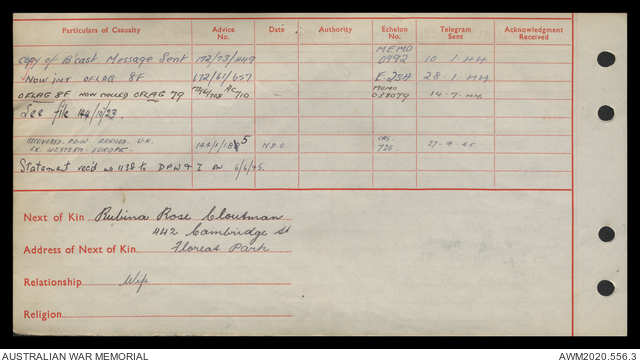 Particulars of Casualty Advice No. Date Authority Echelon No. Telegram Sent Acknowledgment Received
Copy of B'cast Message Sent 172/73/449 MEMO 0992 10 1 44
Now int OFLAG 8F 172/61/657 E.234 28.1.44
OFLAG 8F now called OFLAG 79 710 — MEMO 038079 14-7-44
See file 144/10/23.
RECOVERED. P.O.W. ARRIVED. U.K. EX. WESTERN. EUROPE. 5 CAS. 726. 27-4-45
Statement rec'd no 1138 to DPW & I on 6/6/45.
Next of Kin Rubina Rose Cloutman
442 Cambridge St
Address of Next of Kin Floreat Park
Relationship Wife
Religion
AUSTRALIAN WAR MEMORIAL AWM2020.556.3